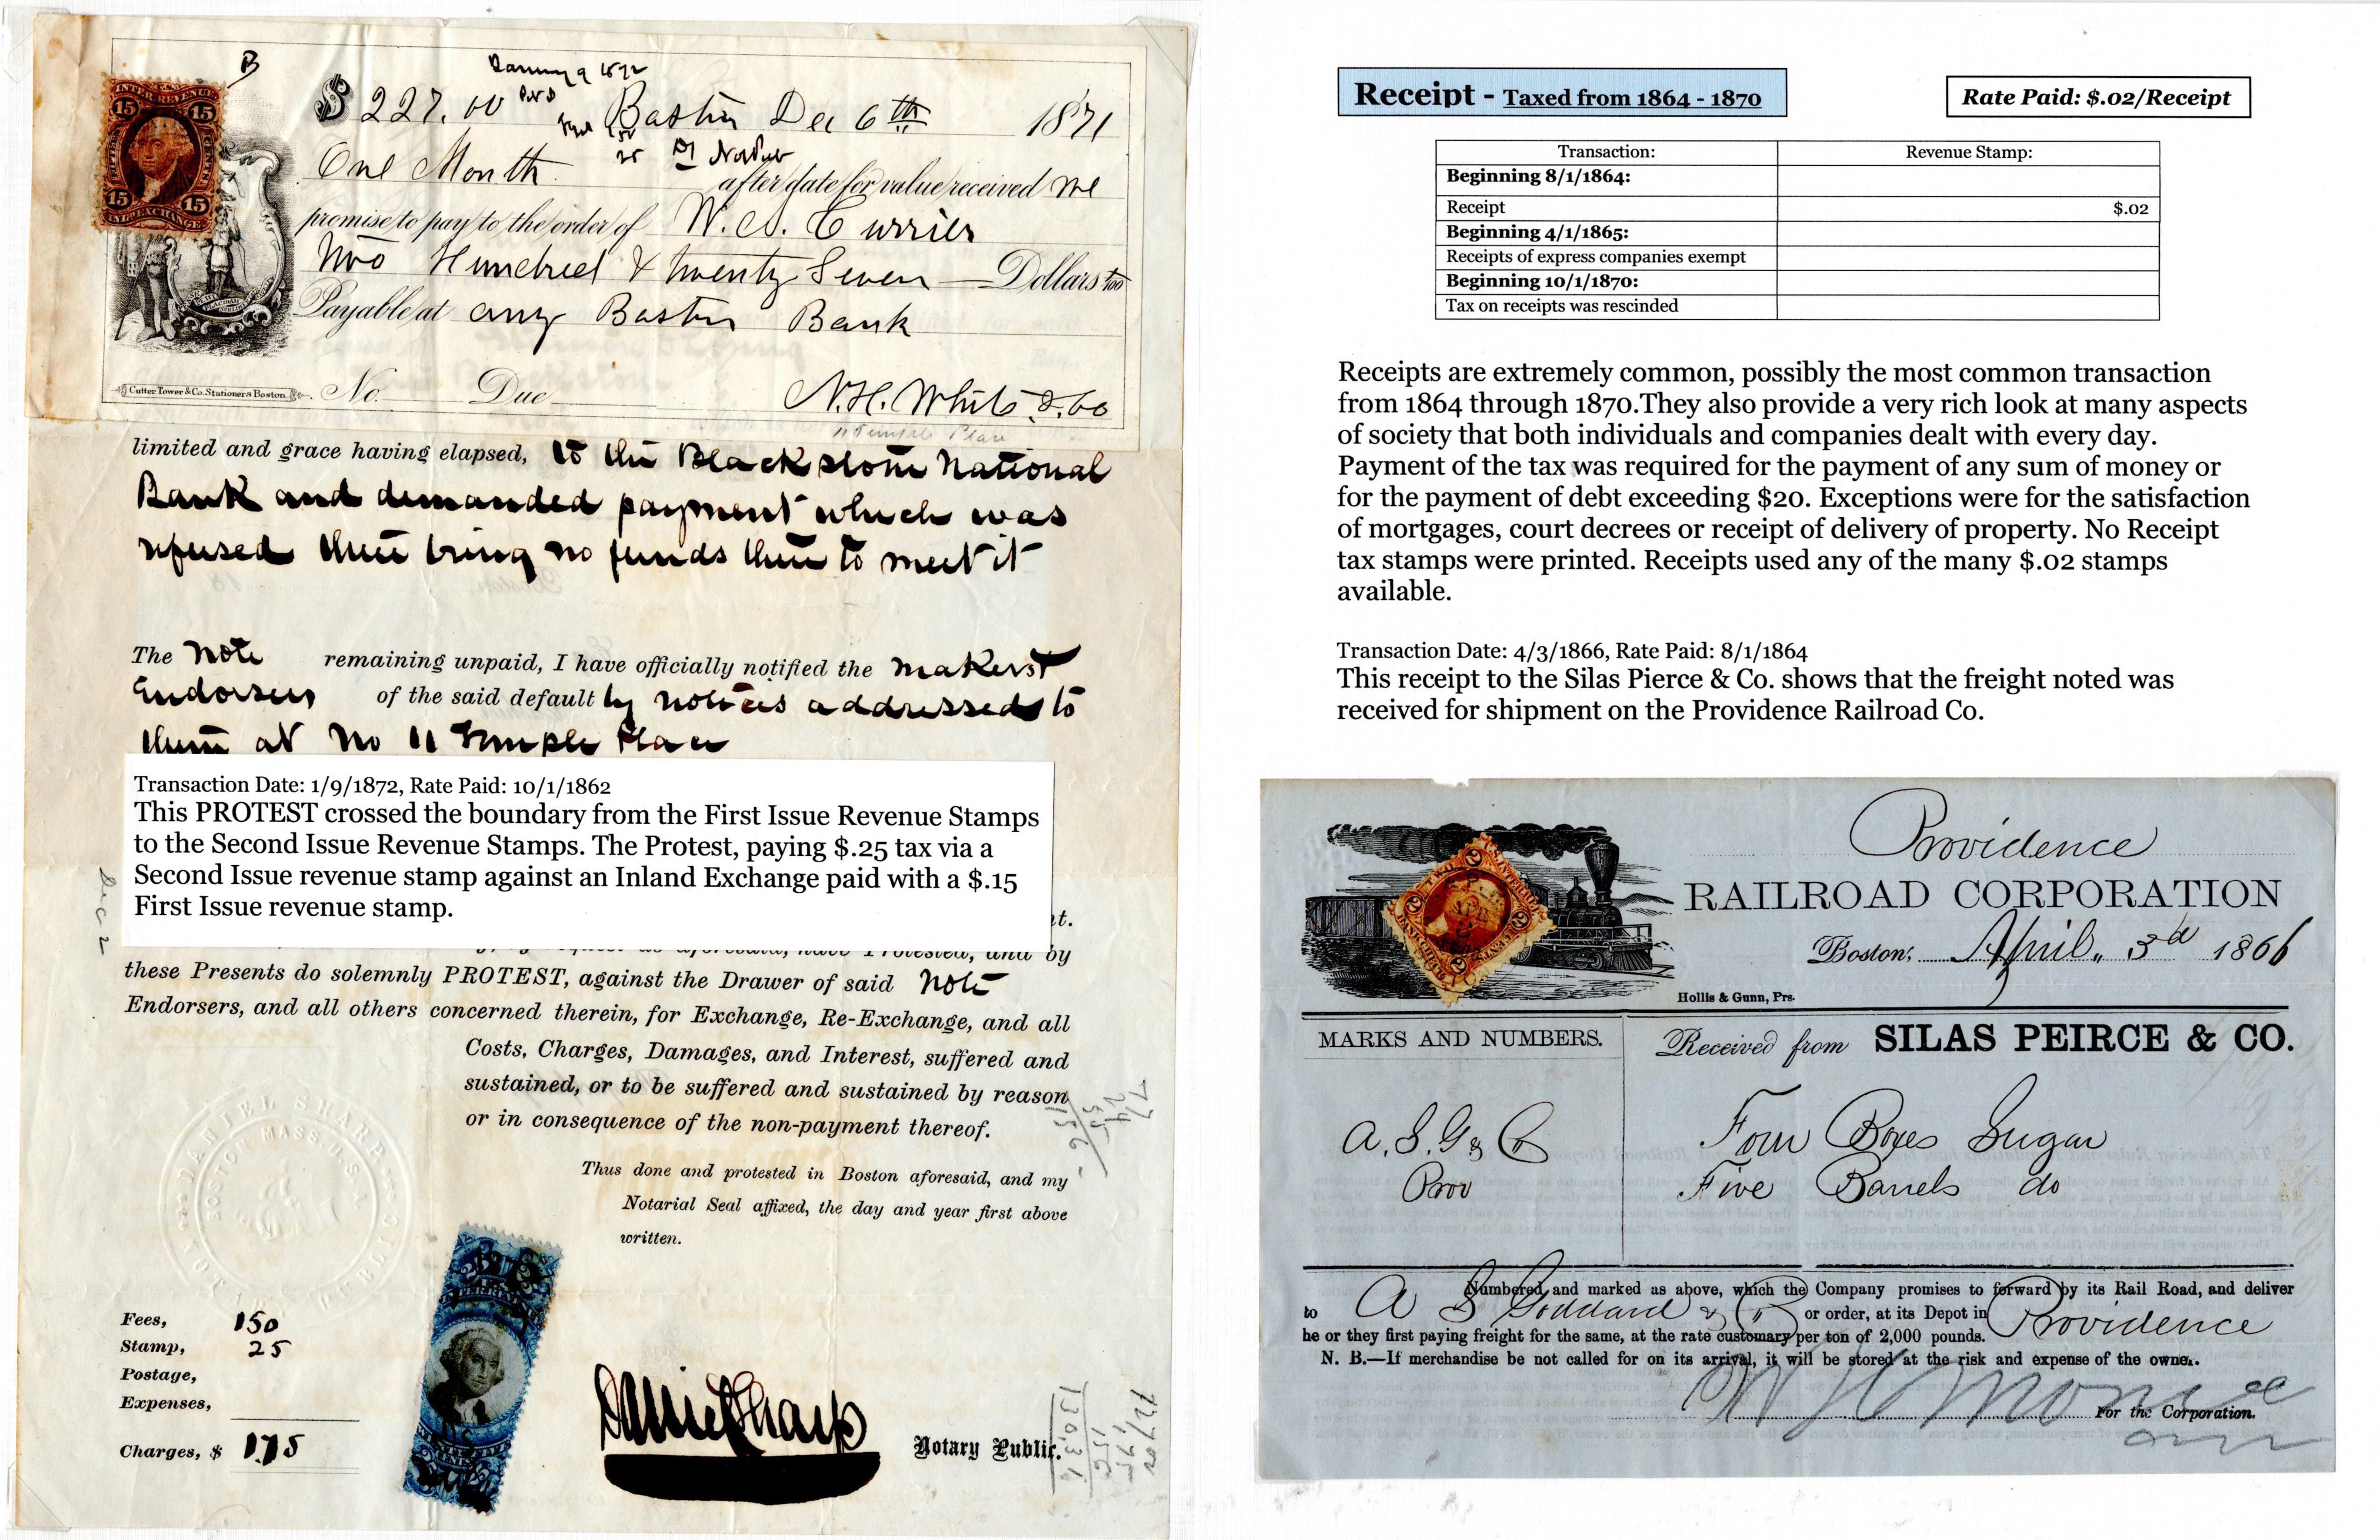 B
INTER. REVENUE
15 15
15 15
INLAND EXCHANGE
$ 227.00 Boston Dec 6th 1871
One Month after date for value received we
promise to pay to the order of W. A. Currier
Two Hundred & twenty Seven Dollars
Payable at any Boston Bank
Cutter Tower & Co. Stationers Boston. No. Due
N. H. White & Co
11 Temple Place
limited and grace having elapsed, to the Blackstone National
Bank and demanded payment which was
refused there being no funds there to meet it
The Note remaining unpaid, I have officially notified the makers &
Endorsers of the said default by notices addressed to
them at No 11 Temple Place
Transaction Date: 1/9/1872, Rate Paid: 10/1/1862
This PROTEST crossed the boundary from the First Issue Revenue Stamps
to the Second Issue Revenue Stamps. The Protest, paying $.25 tax via a
Second Issue revenue stamp against an Inland Exchange paid with a $.15
First Issue revenue stamp.
these Presents do solemnly PROTEST, against the Drawer of said Note
Endorsers, and all others concerned therein, for Exchange, Re-Exchange, and all
Costs, Charges, Damages, and Interest, suffered and
sustained, or to be suffered and sustained by reason
or in consequence of the non-payment thereof.
Thus done and protested in Boston aforesaid, and my
Notarial Seal affixed, the day and year first above
written.
DANIEL SHARP
NOTARY PUBLIC
BOSTON MASS. U.S.A
Fees, 150
Stamp, 25
Postage,
Expenses,
Charges, $ 1.75
Daniel Sharp
Notary Public.
Receipt - Taxed from 1864 - 1870
Rate Paid: $.02/Receipt
Transaction: Revenue Stamp:
Beginning 8/1/1864:
Receipt $.02
Beginning 4/1/1865:
Receipts of express companies exempt
Beginning 10/1/1870:
Tax on receipts was rescinded
Receipts are extremely common, possibly the most common transaction
from 1864 through 1870.They also provide a very rich look at many aspects
of society that both individuals and companies dealt with every day.
Payment of the tax was required for the payment of any sum of money or
for the payment of debt exceeding $20. Exceptions were for the satisfaction
of mortgages, court decrees or receipt of delivery of property. No Receipt
tax stamps were printed. Receipts used any of the many $.02 stamps
available.
Transaction Date: 4/3/1866, Rate Paid: 8/1/1864
This receipt to the Silas Pierce & Co. shows that the freight noted was
received for shipment on the Providence Railroad Co.
Providence
RAILROAD CORPORATION
Boston, April 3d 1866
Hollis & Gunn, Prs.
MARKS AND NUMBERS.
Received from SILAS PEIRCE & CO.
A. S. G & Co Four Boxes Sugar
Prov Five Barrels do
Numbered and marked as above, which the Company promises to forward by its Rail Road, and deliver
to A S Goddard & Co or order, at its Depot in Providence
he or they first paying freight for the same, at the rate customary per ton of 2,000 pounds.
N. B.—If merchandise be not called for on its arrival, it will be stored at the risk and expense of the owner.
For the Corporation.